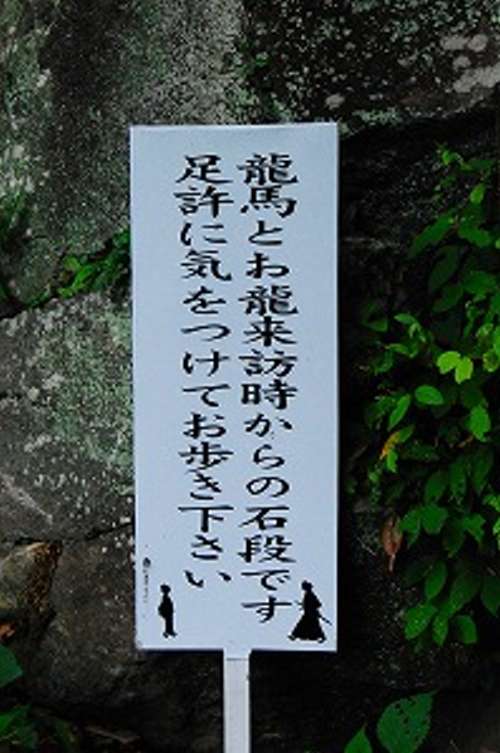 龍馬とお龍来訪時からの石段です
足許に気をつけてお歩き下さい